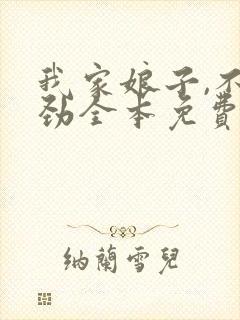 我家娘子,不
劲全本免費
纳蘭雪兒